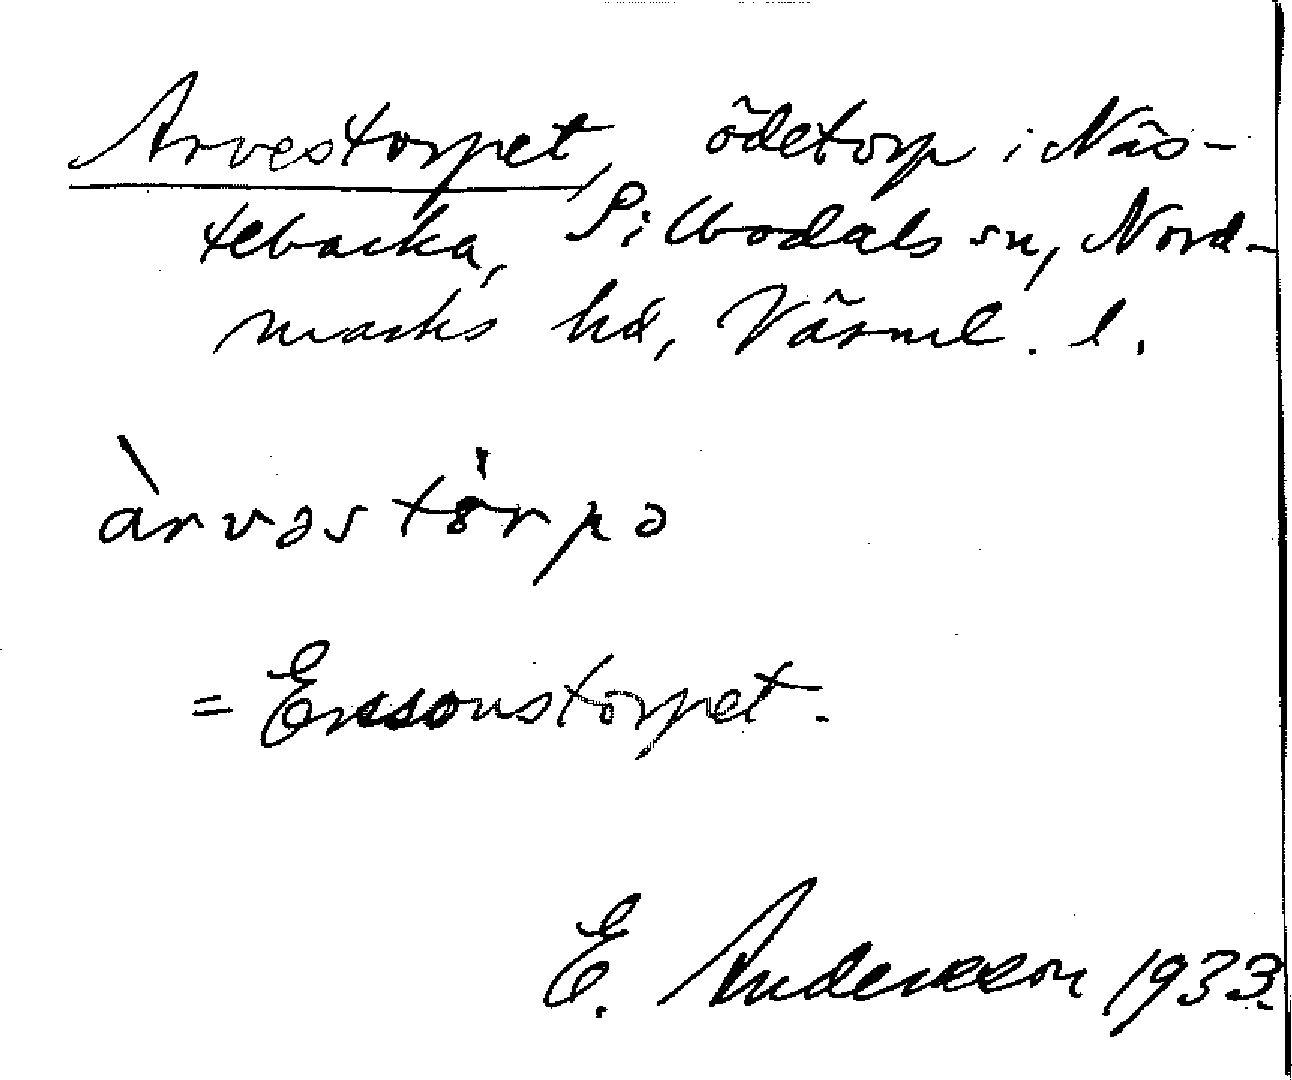 Arvestorpet, ödetorp i Näs-
tebacka, Silbodals sn, Nord-
marks hd, Värml. l.
àrvəstörpə
= Erssonstorpet.
E. Andersson 1933.